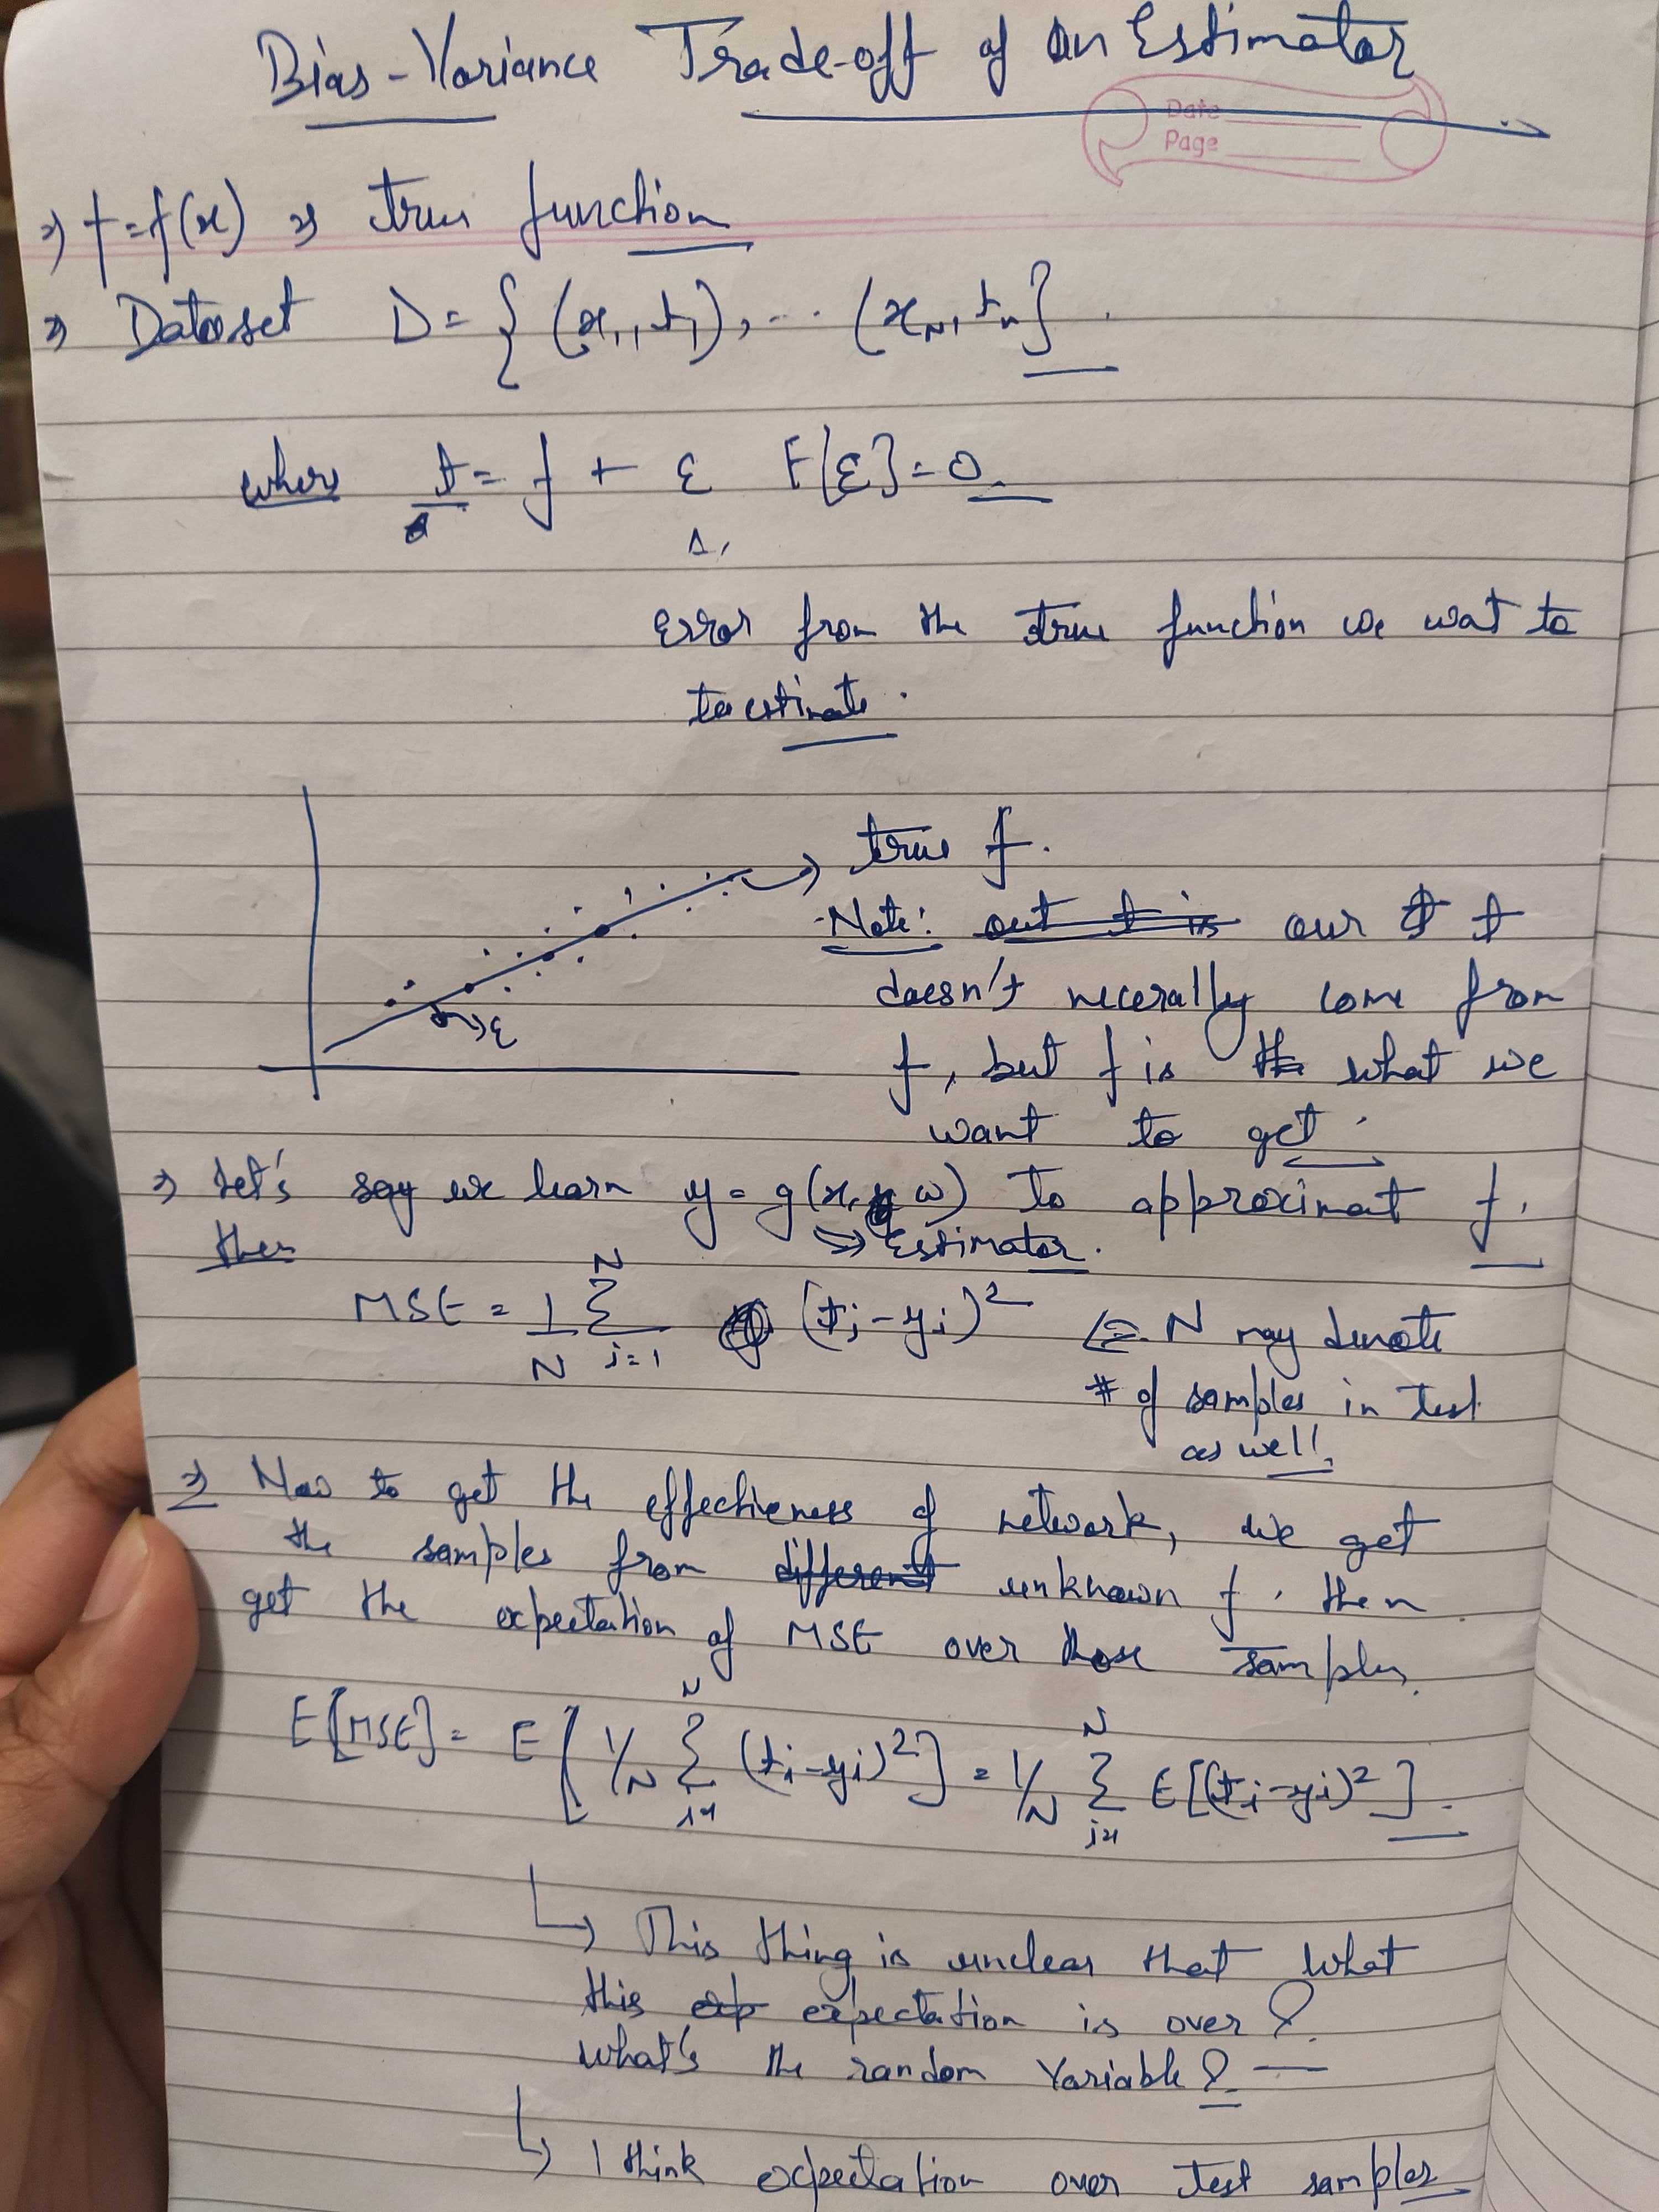 Bias-Variance Trade-off of an Estimator
Date
Page
⇒ f=f(x) ⇒ true function
⇒ Dataset D = { (x₁, t₁), ... (x_N, t_n }
where t = f + ε E[ε] = 0
Error from the true function we wat to
to estimate.
true f.
Note: out t is our t t
doesn't necerally come from
f, but f is the what we
want to get.
ε
⇒ Let's say we learn y = g(x, w) to approximat f.
then
→ Estimator.
MSE = 1/N Σ_{i=1}^{N} (t_i - y_i)² ⇐ N may denote
# of samples in test
as well!
⇒ Now to get the effectieness of network, we get
the samples from different unknown f. then
get the expectation of MSE over those samples.
E[MSE] = E[ 1/N Σ_{i=1}^{N} (t_i - y_i)² ] = 1/N Σ_{i=1}^{N} E[(t_i - y_i)²]
↳ This thing is unclear that what
this exp expectation is over ?
what's the random variable ? —
↳ I think expectation over test samples